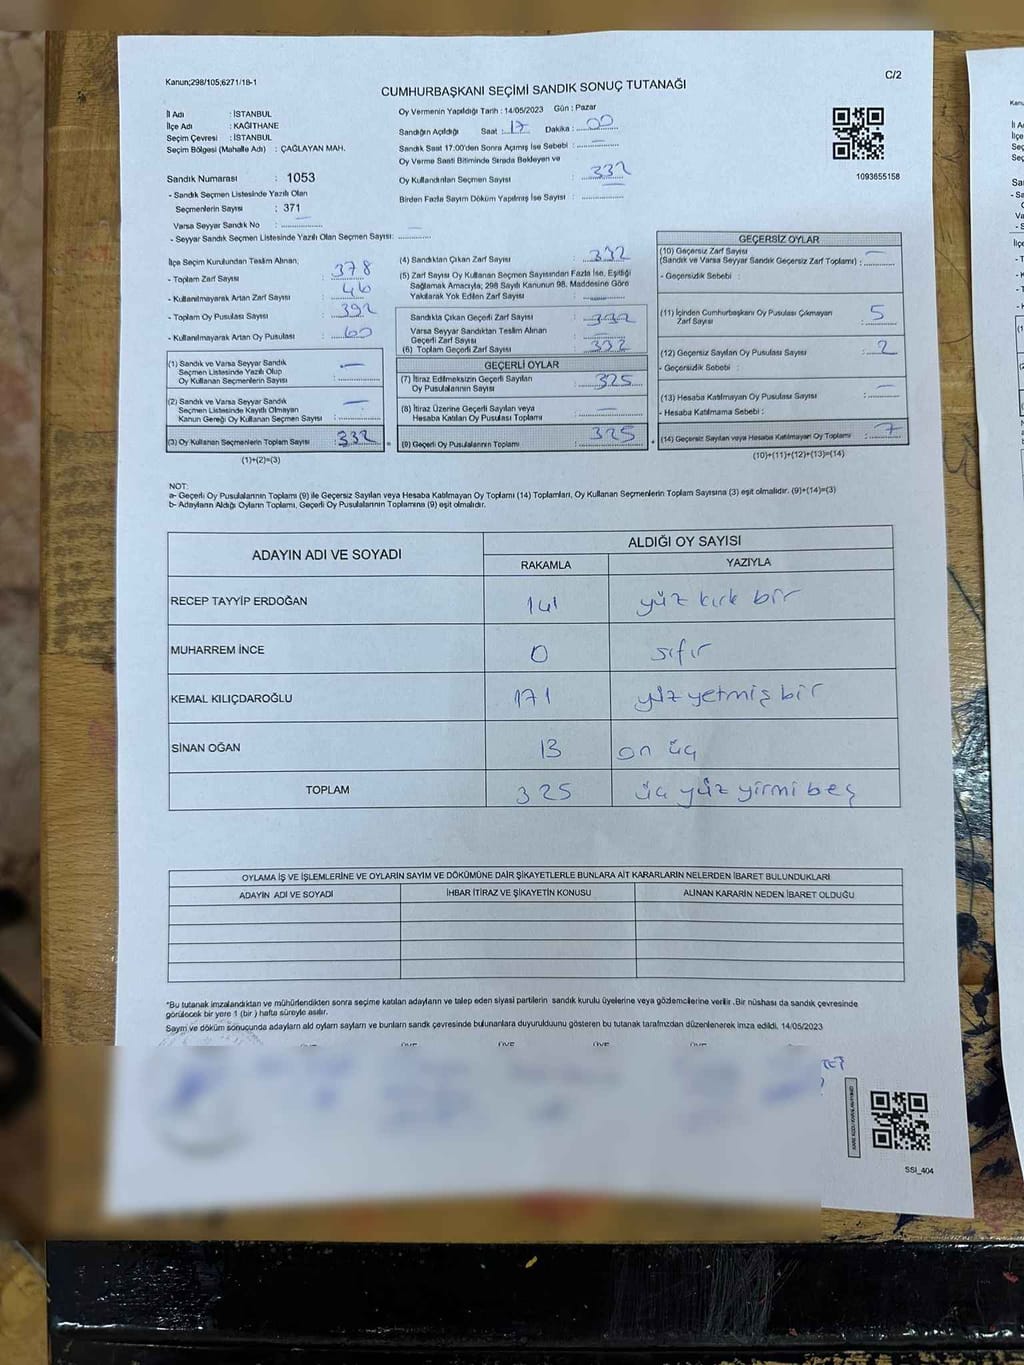 Kanun;298/105;6271/18-1
C/2
CUMHURBAŞKANI SEÇİMİ SANDIK SONUÇ TUTANAĞI
İl Adı : İSTANBUL
İlçe Adı : KAĞITHANE
Seçim Çevresi : İSTANBUL
Seçim Bölgesi (Mahalle Adı) : ÇAĞLAYAN MAH.
Sandık Numarası : 1053
- Sandık Seçmen Listesinde Yazılı Olan
Seçmenlerin Sayısı : 371
Varsa Seyyar Sandık No : —
- Seyyar Sandık Seçmen Listesinde Yazılı Olan Seçmen Sayısı: —
Oy Vermenin Yapıldığı Tarih : 14/05/2023 Gün : Pazar
Sandığın Açıldığı Saat : 17 Dakika : 00
Sandık Saat 17:00'den Sonra Açımış İse Sebebi : —
Oy Verme Saati Bitiminde Sırada Bekleyen ve
Oy Kullandırılan Seçmen Sayısı : 332
Birden Fazla Sayım Döküm Yapılmış İse Sayısı : —
1093655158
İlçe Seçim Kurulundan Teslim Alınan;
- Toplam Zarf Sayısı : 378
- Kullanılmayarak Artan Zarf Sayısı : 46
- Toplam Oy Pusulası Sayısı : 392
- Kullanılmayarak Artan Oy Pusulası : 60
(1) Sandık ve Varsa Seyyar Sandık
Seçmen Listesinde Yazılı Olup
Oy Kullanan Seçmenlerin Sayısı : —
(2) Sandık ve Varsa Seyyar Sandık
Seçmen Listesinde Kayıtlı Olmayan
Kanun Gereği Oy Kullanan Seçmen Sayısı : —
(3) Oy Kullanan Seçmenlerin Toplam Sayısı : 332
(1)+(2)=(3)
(4) Sandıktan Çıkan Zarf Sayısı : 332
(5) Zarf Sayısı Oy Kullanan Seçmen Sayısından Fazla İse, Eşitliği
Sağlamak Amacıyla; 298 Sayılı Kanunun 98. Maddesine Göre
Yakılarak Yok Edilen Zarf Sayısı : —
Sandıkta Çıkan Geçerli Zarf Sayısı : 332
Varsa Seyyar Sandıktan Teslim Alınan
Geçerli Zarf Sayısı : —
(6) Toplam Geçerli Zarf Sayısı : 332
GEÇERLİ OYLAR
(7) İtiraz Edilmeksizin Geçerli Sayılan
Oy Pusulalarının Sayısı : 325
(8) İtiraz Üzerine Geçerli Sayılan veya
Hesaba Katılan Oy Pusulası Toplamı : —
(9) Geçerli Oy Pusulalarının Toplamı : 325
GEÇERSİZ OYLAR
(10) Geçersiz Zarf Sayısı
(Sandık ve Varsa Seyyar Sandık Geçersiz Zarf Toplamı) : —
- Geçersizlik Sebebi :
(11) İçinden Cumhurbaşkanı Oy Pusulası Çıkmayan
Zarf Sayısı : 5
(12) Geçersiz Sayılan Oy Pusulası Sayısı : 2
- Geçersizlik Sebebi :
(13) Hesaba Katılmayan Oy Pusulası Sayısı : —
- Hesaba Katılmama Sebebi :
(14) Geçersiz Sayılan veya Hesaba Katılmayan Oy Toplamı : 7
(10)+(11)+(12)+(13)=(14)
NOT:
a- Geçerli Oy Pusulalarının Toplamı (9) ile Geçersiz Sayılan veya Hesaba Katılmayan Oy Toplamı (14) Toplamları, Oy Kullanan Seçmenlerin Toplam Sayısına (3) eşit olmalıdır. (9)+(14)=(3)
b- Adayların Aldığı Oyların Toplamı, Geçerli Oy Pusulalarının Toplamına (9) eşit olmalıdır.
ADAYIN ADI VE SOYADI
ALDIĞI OY SAYISI
RAKAMLA YAZIYLA
RECEP TAYYİP ERDOĞAN 141 yüz kırk bir
MUHARREM İNCE 0 sıfır
KEMAL KILIÇDAROĞLU 171 yüz yetmiş bir
SİNAN OĞAN 13 on üç
TOPLAM 325 üç yüz yirmi beş
OYLAMA İŞ VE İŞLEMLERİNE VE OYLARIN SAYIM VE DÖKÜMÜNE DAİR ŞİKAYETLERLE BUNLARA AİT KARARLARIN NELERDEN İBARET BULUNDUKLARI
ADAYIN ADI VE SOYADI İHBAR İTİRAZ VE ŞİKAYETİN KONUSU ALINAN KARARIN NEDEN İBARET OLDUĞU
*Bu tutanak imzalandıktan ve mühürlendikten sonra seçime katılan adayların ve talep eden siyasi partilerin sandık kurulu üyelerine veya gözlemcilerine verilir .Bir nüshası da sandık çevresinde
görülecek bir yere 1 (bir ) hafta süreyle asılır.
Sayım ve döküm sonucunda adayların aldı oyların sayılarını ve bunların sandık çevresinde bulunanlara duyurulduğunu gösteren bu tutanak tarafımızdan düzenlenerek imza edildi. 14/05/2023
ÜYE ÜYE ÜYE ÜYE ÜYE
SSİ_404